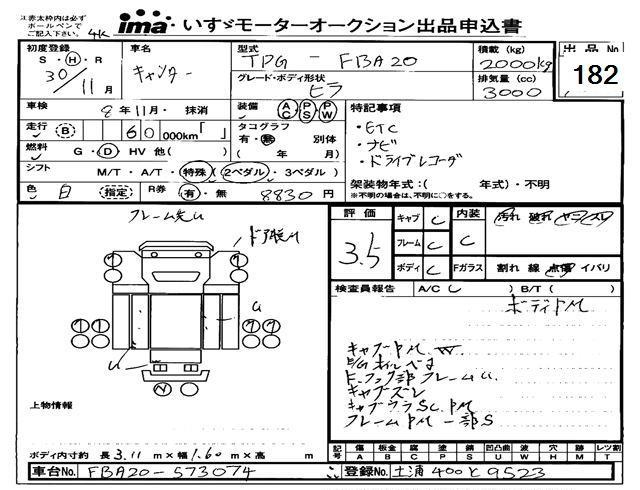 注.赤太枠内は必ず
ボールペンで
ご記入下さい。
4K
ima いすゞモーターオークション出品申込書
初度登録
S・H・R
30/11月
車名
キャンター
型式
TPG-FBA20
グレード・ボディ形状
ヒラ
積載(kg)
2000kg
排気量(cc)
3000
出品No
182
車検 8年11月・抹消
走行 B 60000km「 」
燃料 G・D・HV 他( )
シフト M/T・A/T・特殊(2ペダル・3ペダル)
色 白 指定
R券 有・無 8830円
装備 AC PS PW
タコグラフ
有・無 別体
( 年 月)
特記事項
・ETC
・ナビ
・ドライブレコーダ
架装物年式:( 年式)・不明
※不明の場合は、不明に○をする。
フレーム先U
U
U
上物情報
ボディ内寸約 長3.11m×幅1.60m×高 m
車台No. FBA20-573074
評価
3.5
キャブ C
フレーム C
ボディ C
内装 C
Fガラス
汚れ 破れ ヤニ・スス
割れ 線 点傷 イバリ
検査員報告 A/C( ) B/T( )
ボディPM
キャブPM.W
フレームU
キャブズレ
キャブウラSC.PM
フレームPM一部S
記号 傷A 板金B 腐C 塗P 錆S 凹U 凸曲 波W 穴H 跡M レツ割T
登録No. 土浦400と9523